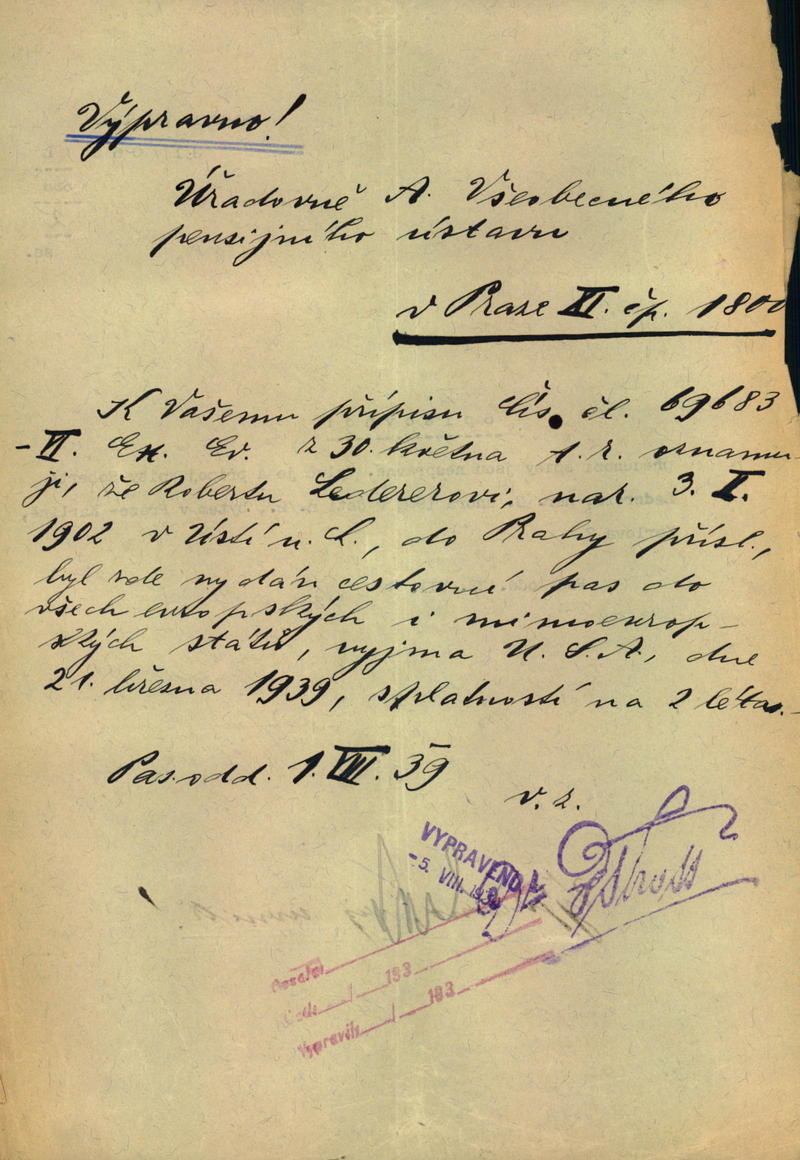 Výpravno!
Úřadovně A. Všeobecného
pensijního ústavu
v Praze XI. čp. 1800
K Vašemu přípisu čís. čl. 69683
-II. Ex. Ev. z 30. května t. r. oznamu-
ji, že Robertu Ledererovi, nar. 3. I.
1902 v Ústí n. L., do Prahy přísl.,
byl zde vydán cestovní pas do
všech evropských i mimoevrop-
ských států, vyjma U. S. A., dne
21. března 1939, s platností na 2 léta.-
Pas. odd. 1. VIII. 39
v. z.
VYPRAVENO
-5. VIII. 1939
193
Vypravil 193